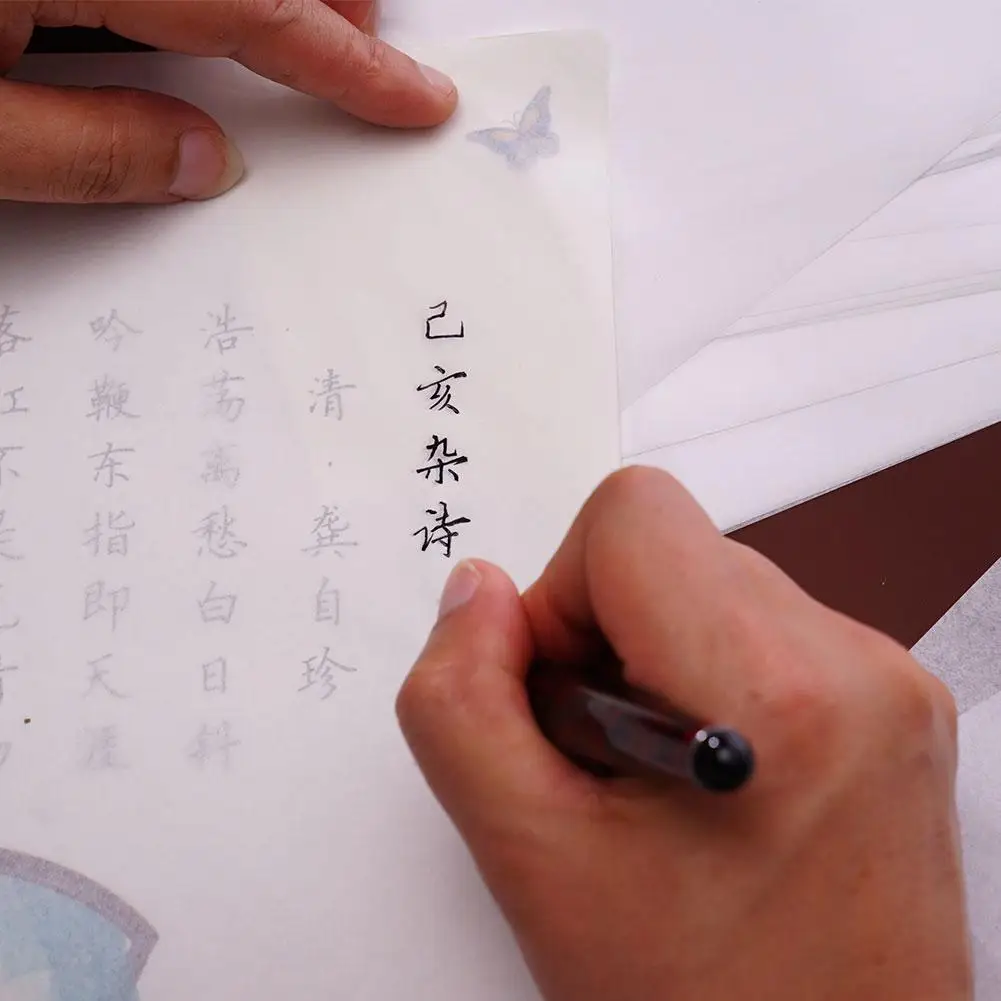 己亥杂诗
清·龚自珍
浩荡离愁白日斜
吟鞭东指即天涯
落红不是